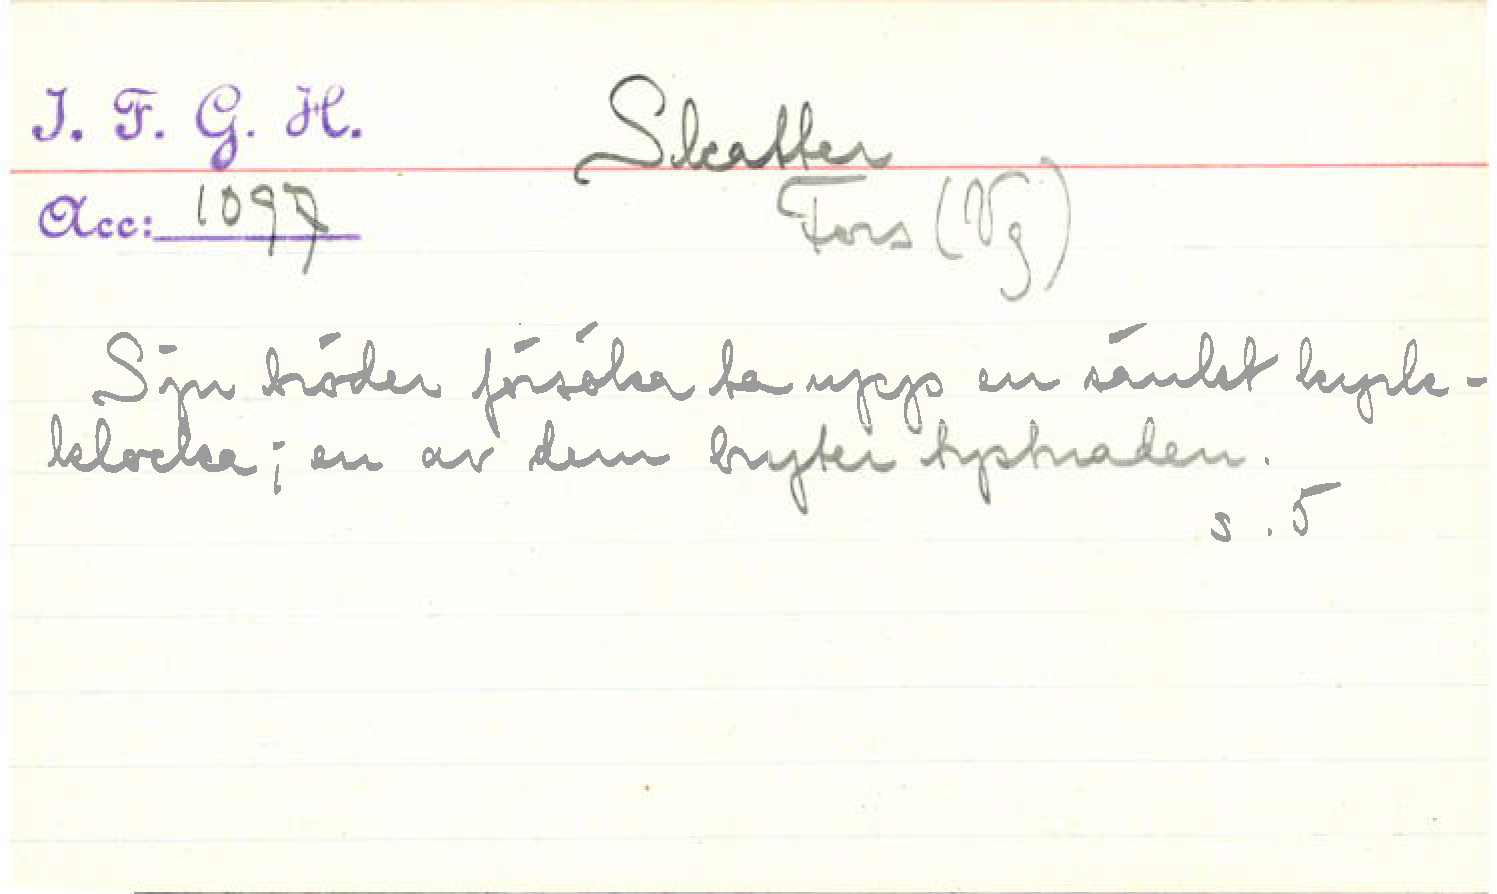 I. F. G. H.
Skatter
Acc: 1097
Fors (Vg)
Sju bröder försöka ta upp en sänkt kyrk-
klocka; en av dem bryter tystnaden.
s. 5